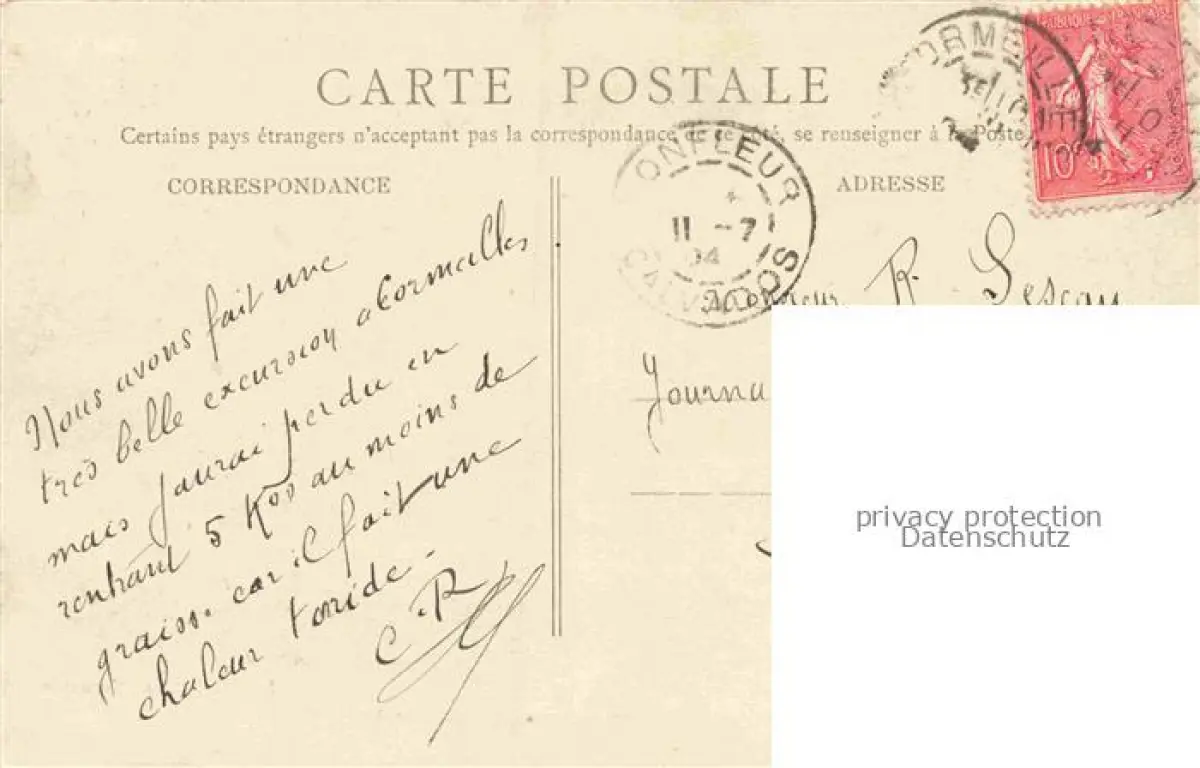 CARTE POSTALE
Certains pays étrangers n'acceptent pas la correspondance de ce côté, se renseigner à la Poste.
CORRESPONDANCE
ADRESSE
RÉPUBLIQUE FRANÇAISE
10
CORMEILLES
HONFLEUR
11 - 7
04
CALVADOS
Nous avons fait une
très belle excursion a Cormeilles
mais jaurai perdu en
rentrant 5 Kos au moins de
graisse car il fait une
chaleur toride.
C.R
Monsieur R. Lescau
Journa
privacy protection
Datenschutz